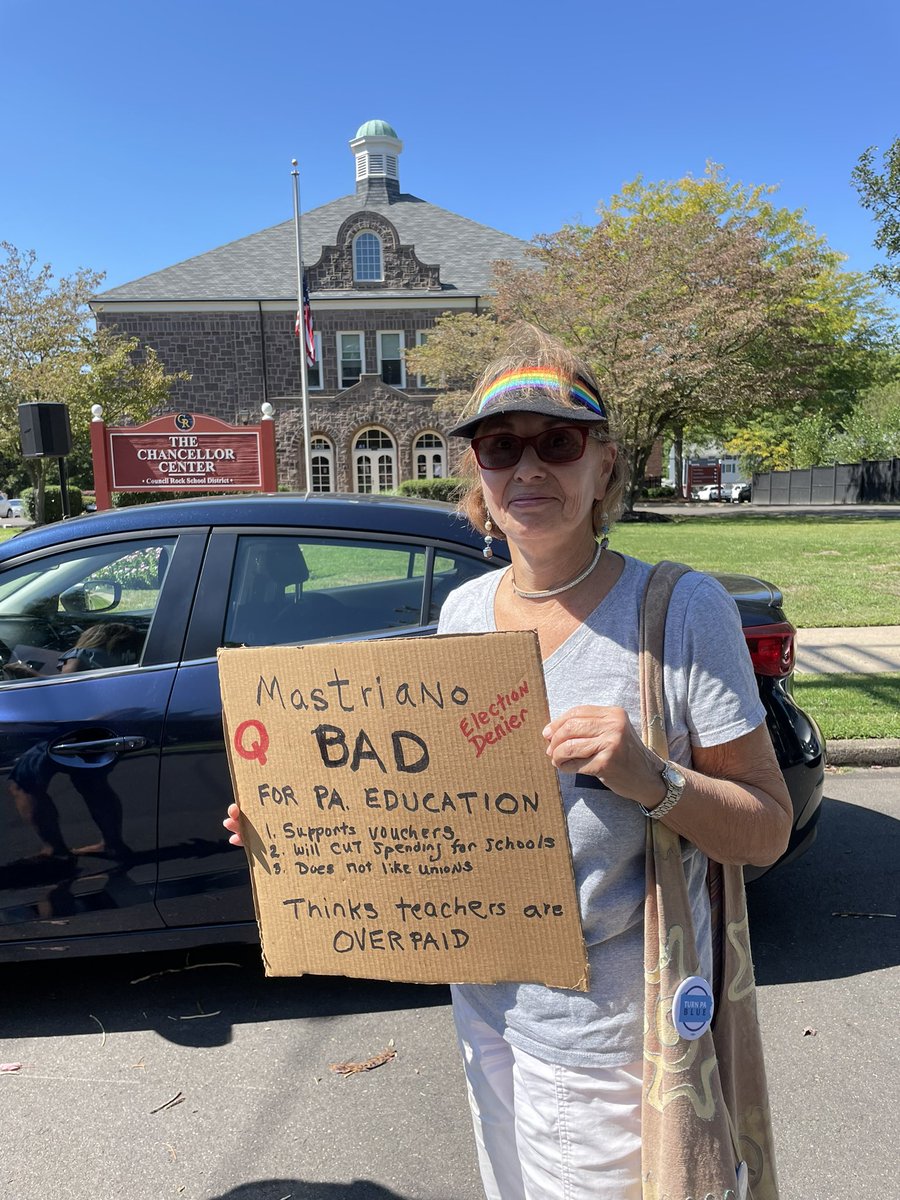 CR
THE
CHANCELLOR
CENTER
• Council Rock School District •
Mastriano
Q
BAD
Election
Denier
FOR PA. EDUCATION
1. Supports vouchers
2. Will CUT spending for schools
3. Does not like unions
Thinks teachers are
OVERPAID
TURN PA
BLUE